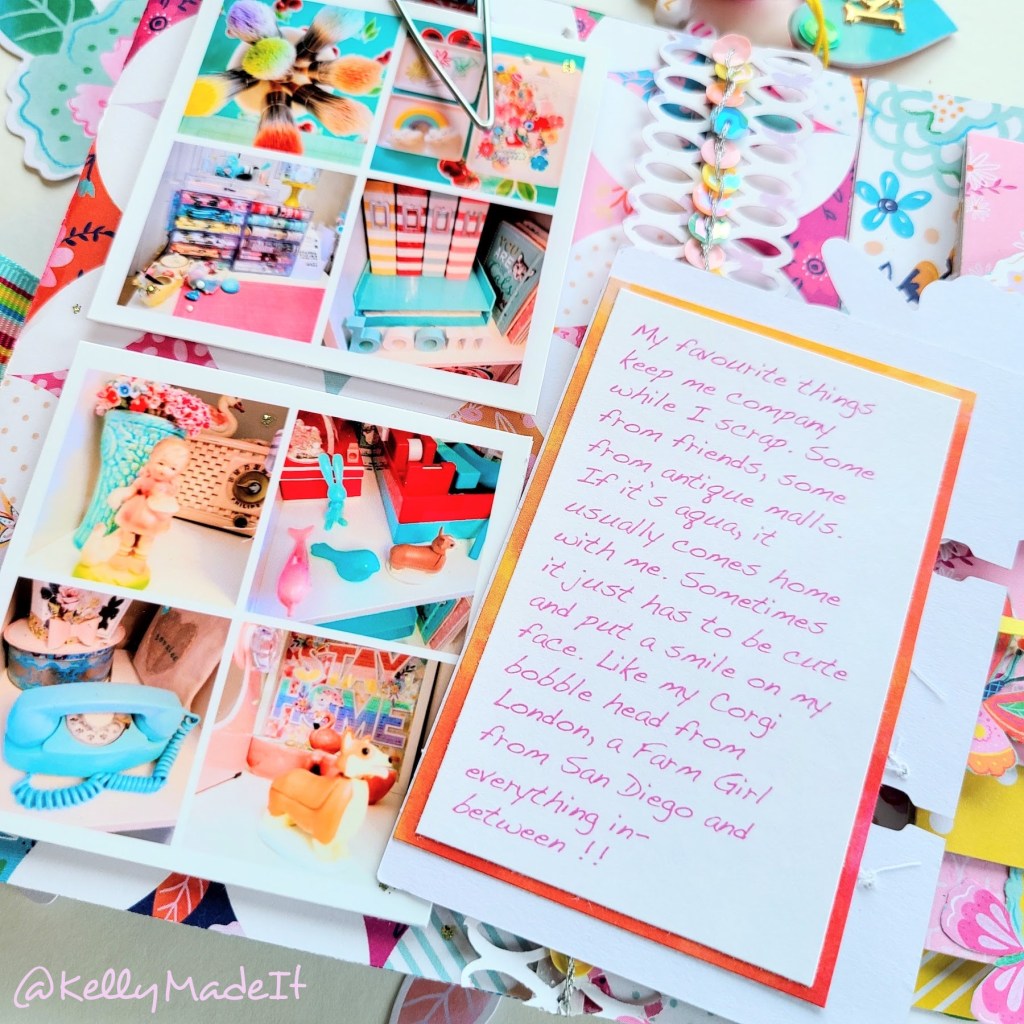 My favourite things
keep me company
while I scrap. Some
from friends, some
from antique malls.
If it`s aqua, it
usually comes home
with me. Sometimes
it just has to be cute
and put a smile on my
face. Like my Corgi
bobble head from
London, a Farm Girl
from San Diego and
everything in-
between !!
STAY
HOME
K
@KellyMadeIt